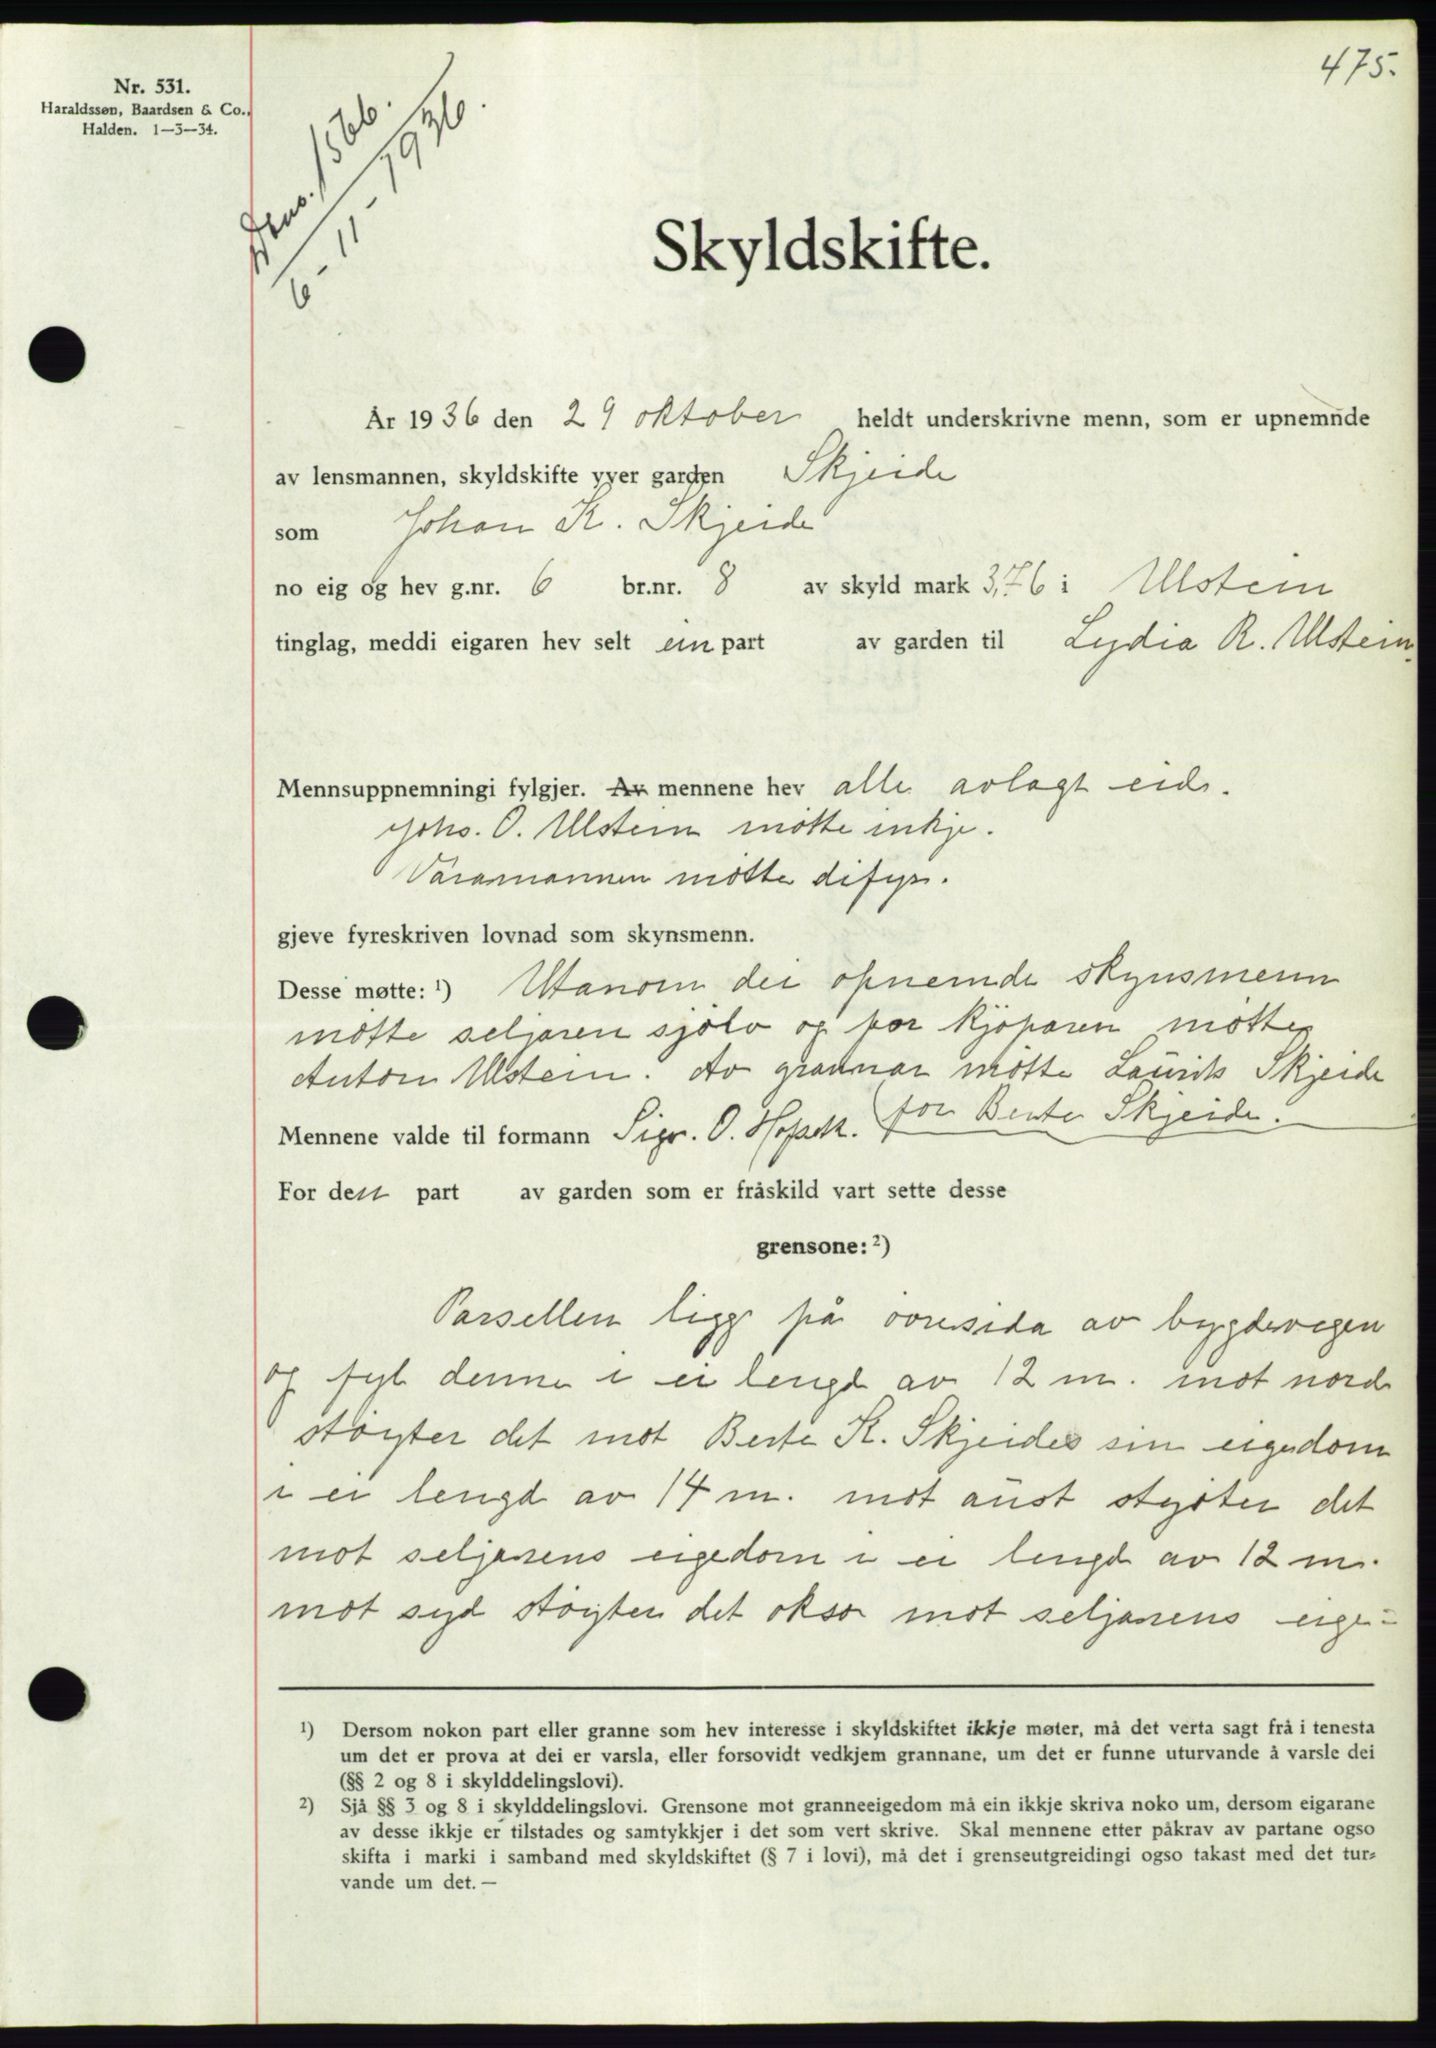 475.
Nr. 531.
Haraldssøn, Baardsen & Co.,
Halden. 1—3—34.
1566.
6-11-1936.
Skyldskifte.
År 1936 den 29 oktober heldt underskrivne menn, som er upnemnde
av lensmannen, skyldskifte yver garden Skjeide
som Johan K. Skjeide
no eig og hev g.nr. 6 br.nr. 8 av skyld mark 3,76 i Ulstein
tinglag, meddi eigaren hev selt ein part av garden til Lydia R. Ulstein.
Mennsuppnemningi fylgjer. Av mennene hev alle avlagt eid.
Johs. O. Ulstein møtte inkje.
Varamannen møtte difyr.
gjeve fyreskriven lovnad som skynsmenn.
Desse møtte: ¹) Utanom dei opnemde skynsmenn
møtte seljaren sjølv og for kjøparen møtte
Anton Ulstein. Av grannar møtte Laurits Skjeide
for Berte Skjeide.
Mennene valde til formann Sigv. O.
For den part av garden som er fråskild vart sette desse
grensone: ²)
Parsellen ligg på øvresida av bygdevegen
og fyl denne i ei lengd av 12 m. mot nord
støyter det mot Berte K. Skjeides sin eigedom
i ei lengd av 14 m. mot aust støyter det
mot seljarens eigedom i ei lengd av 12 m.
mot syd støyter det okso mot seljarens eige-
¹) Dersom nokon part eller granne som hev interesse i skyldskiftet ikkje møter, må det verta sagt frå i tenesta
um det er prova at dei er varsla, eller forsovidt vedkjem grannane, um det er funne uturvande å varsle dei
(§§ 2 og 8 i skylddelingslovi).
²) Sjå §§ 3 og 8 i skylddelingslovi. Grensone mot granneeigedom må ein ikkje skriva noko um, dersom eigarane
av desse ikkje er tilstades og samtykkjer i det som vert skrive. Skal mennene etter påkrav av partane ogso
skifta i marki i samband med skyldskiftet (§ 7 i lovi), må det i grenseutgreidingi ogso takast med det tur-
vande um det. —